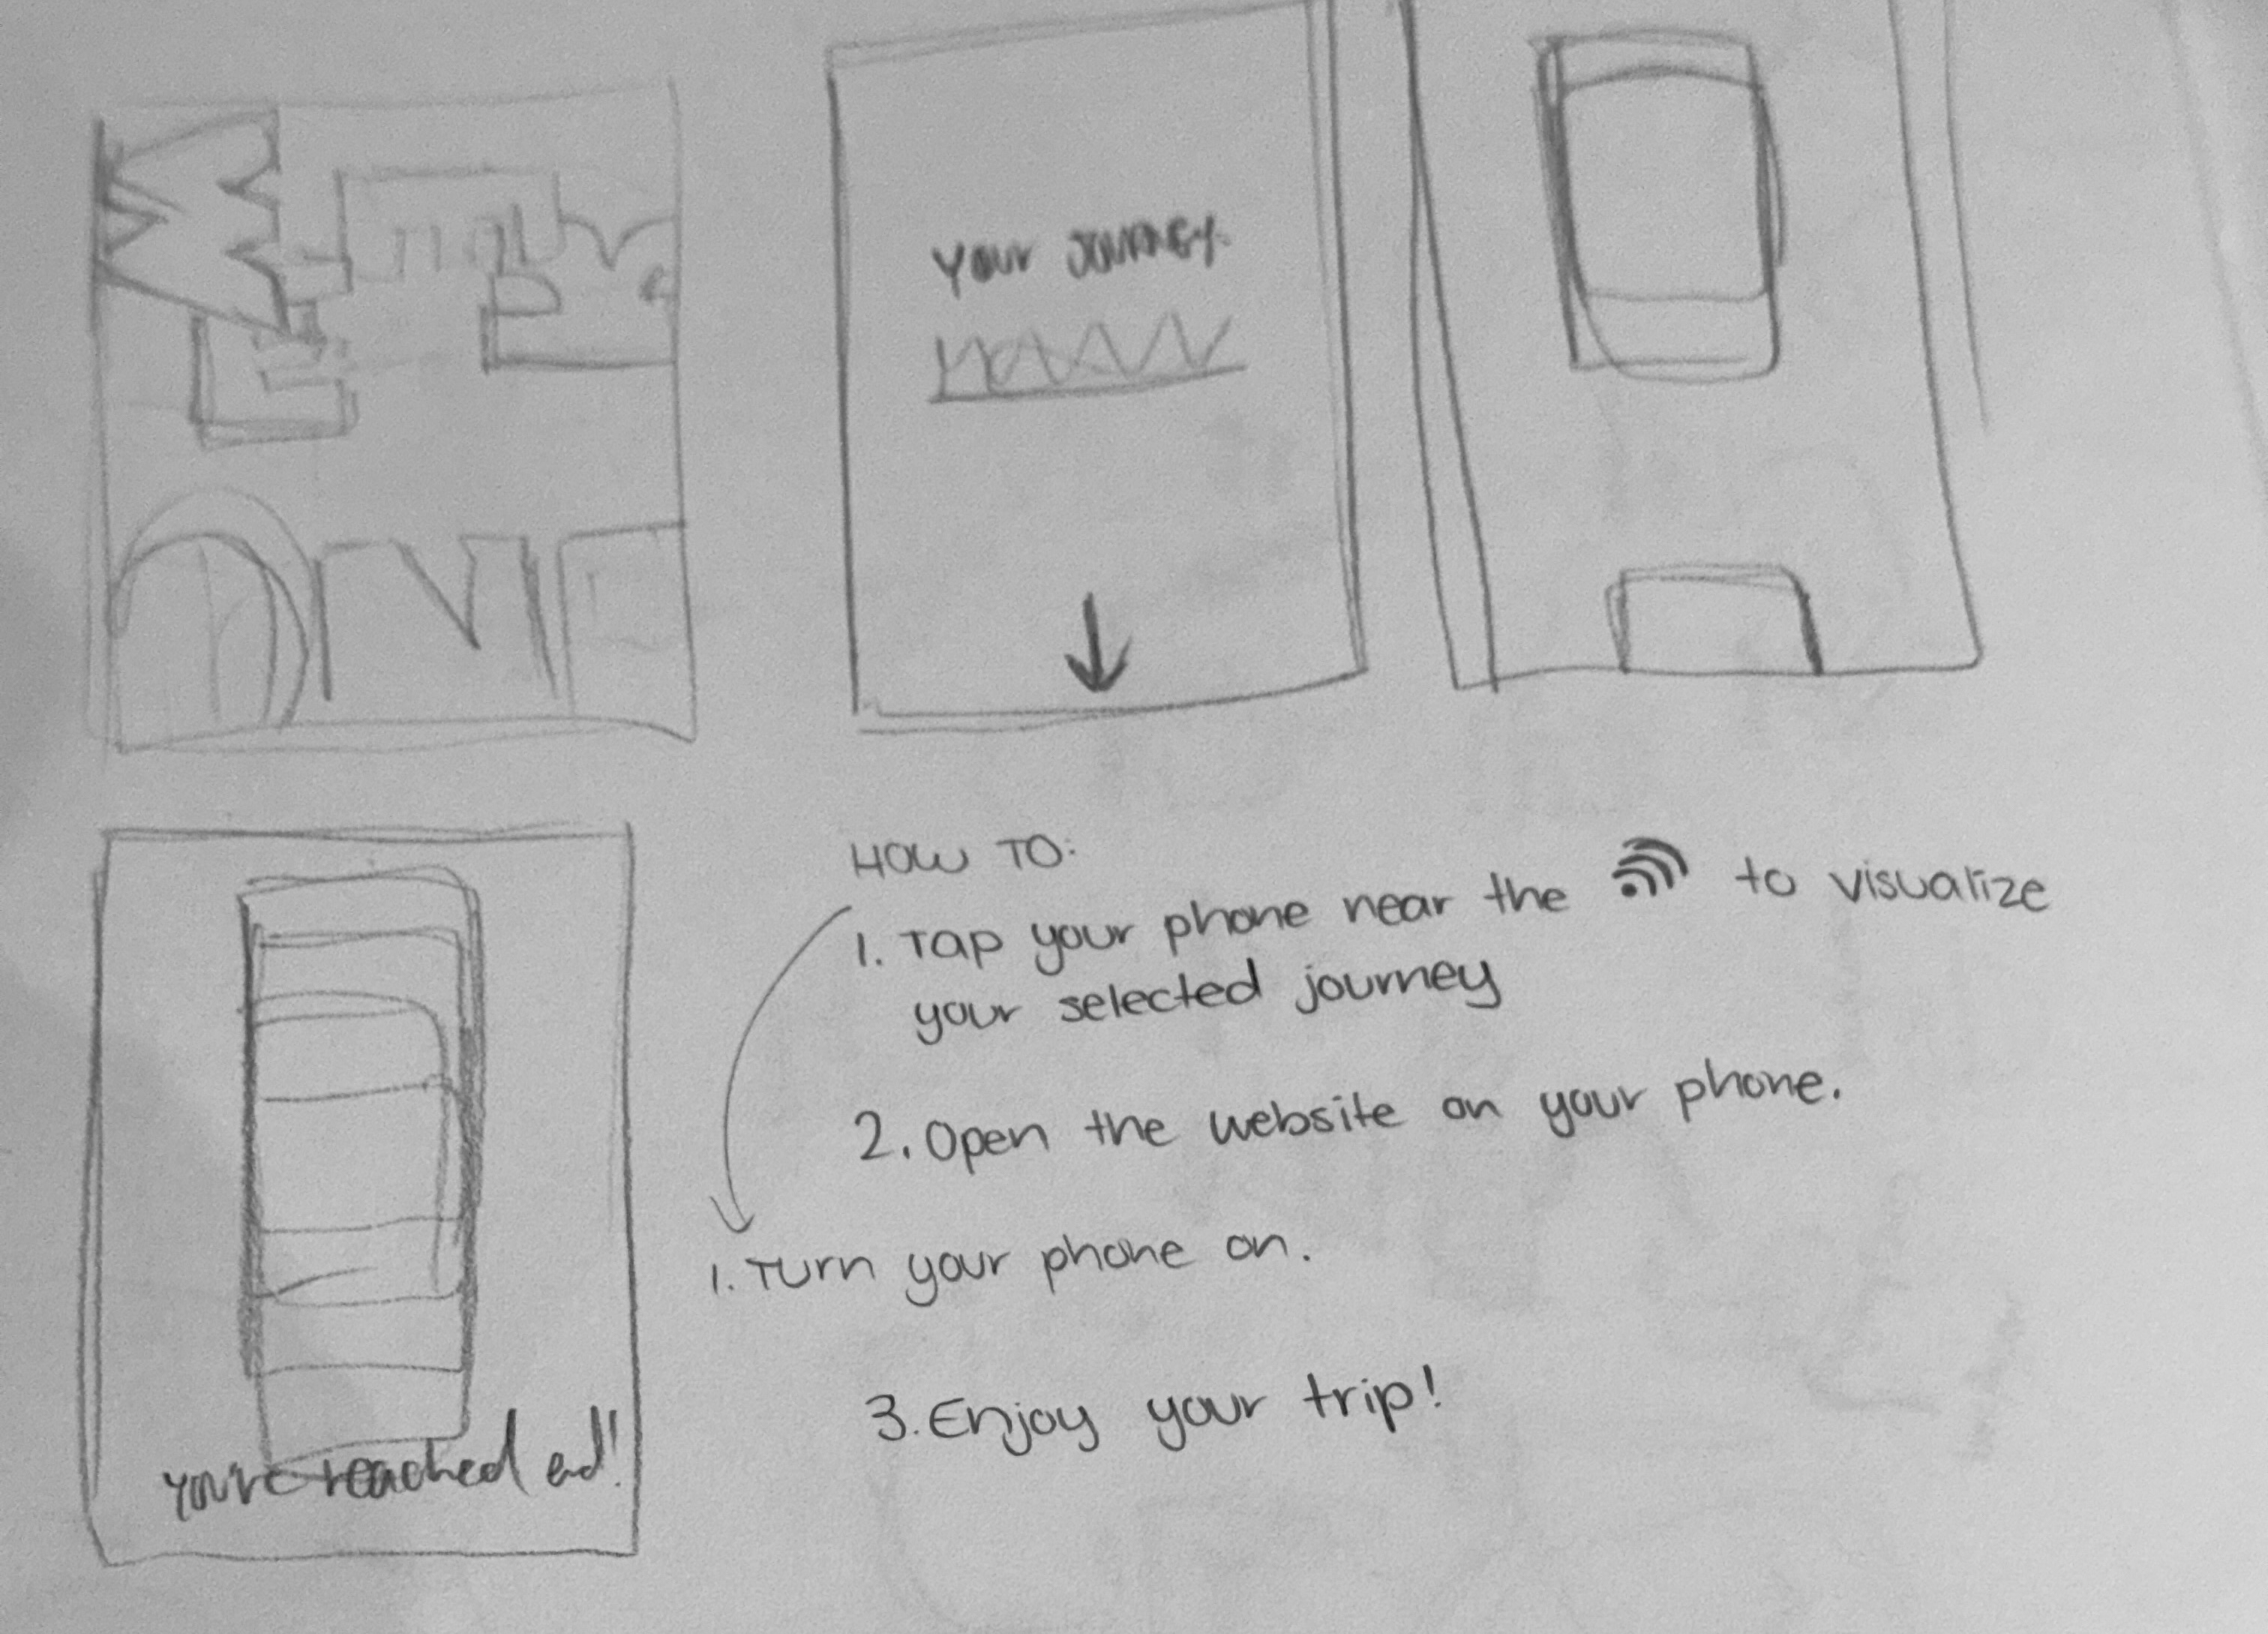 Your Journey.
HOW TO:
1. Tap your phone near the to visualize
your selected journey
2. Open the website on your phone.
1. Turn your phone on.
3. Enjoy your trip!
You're reached end!